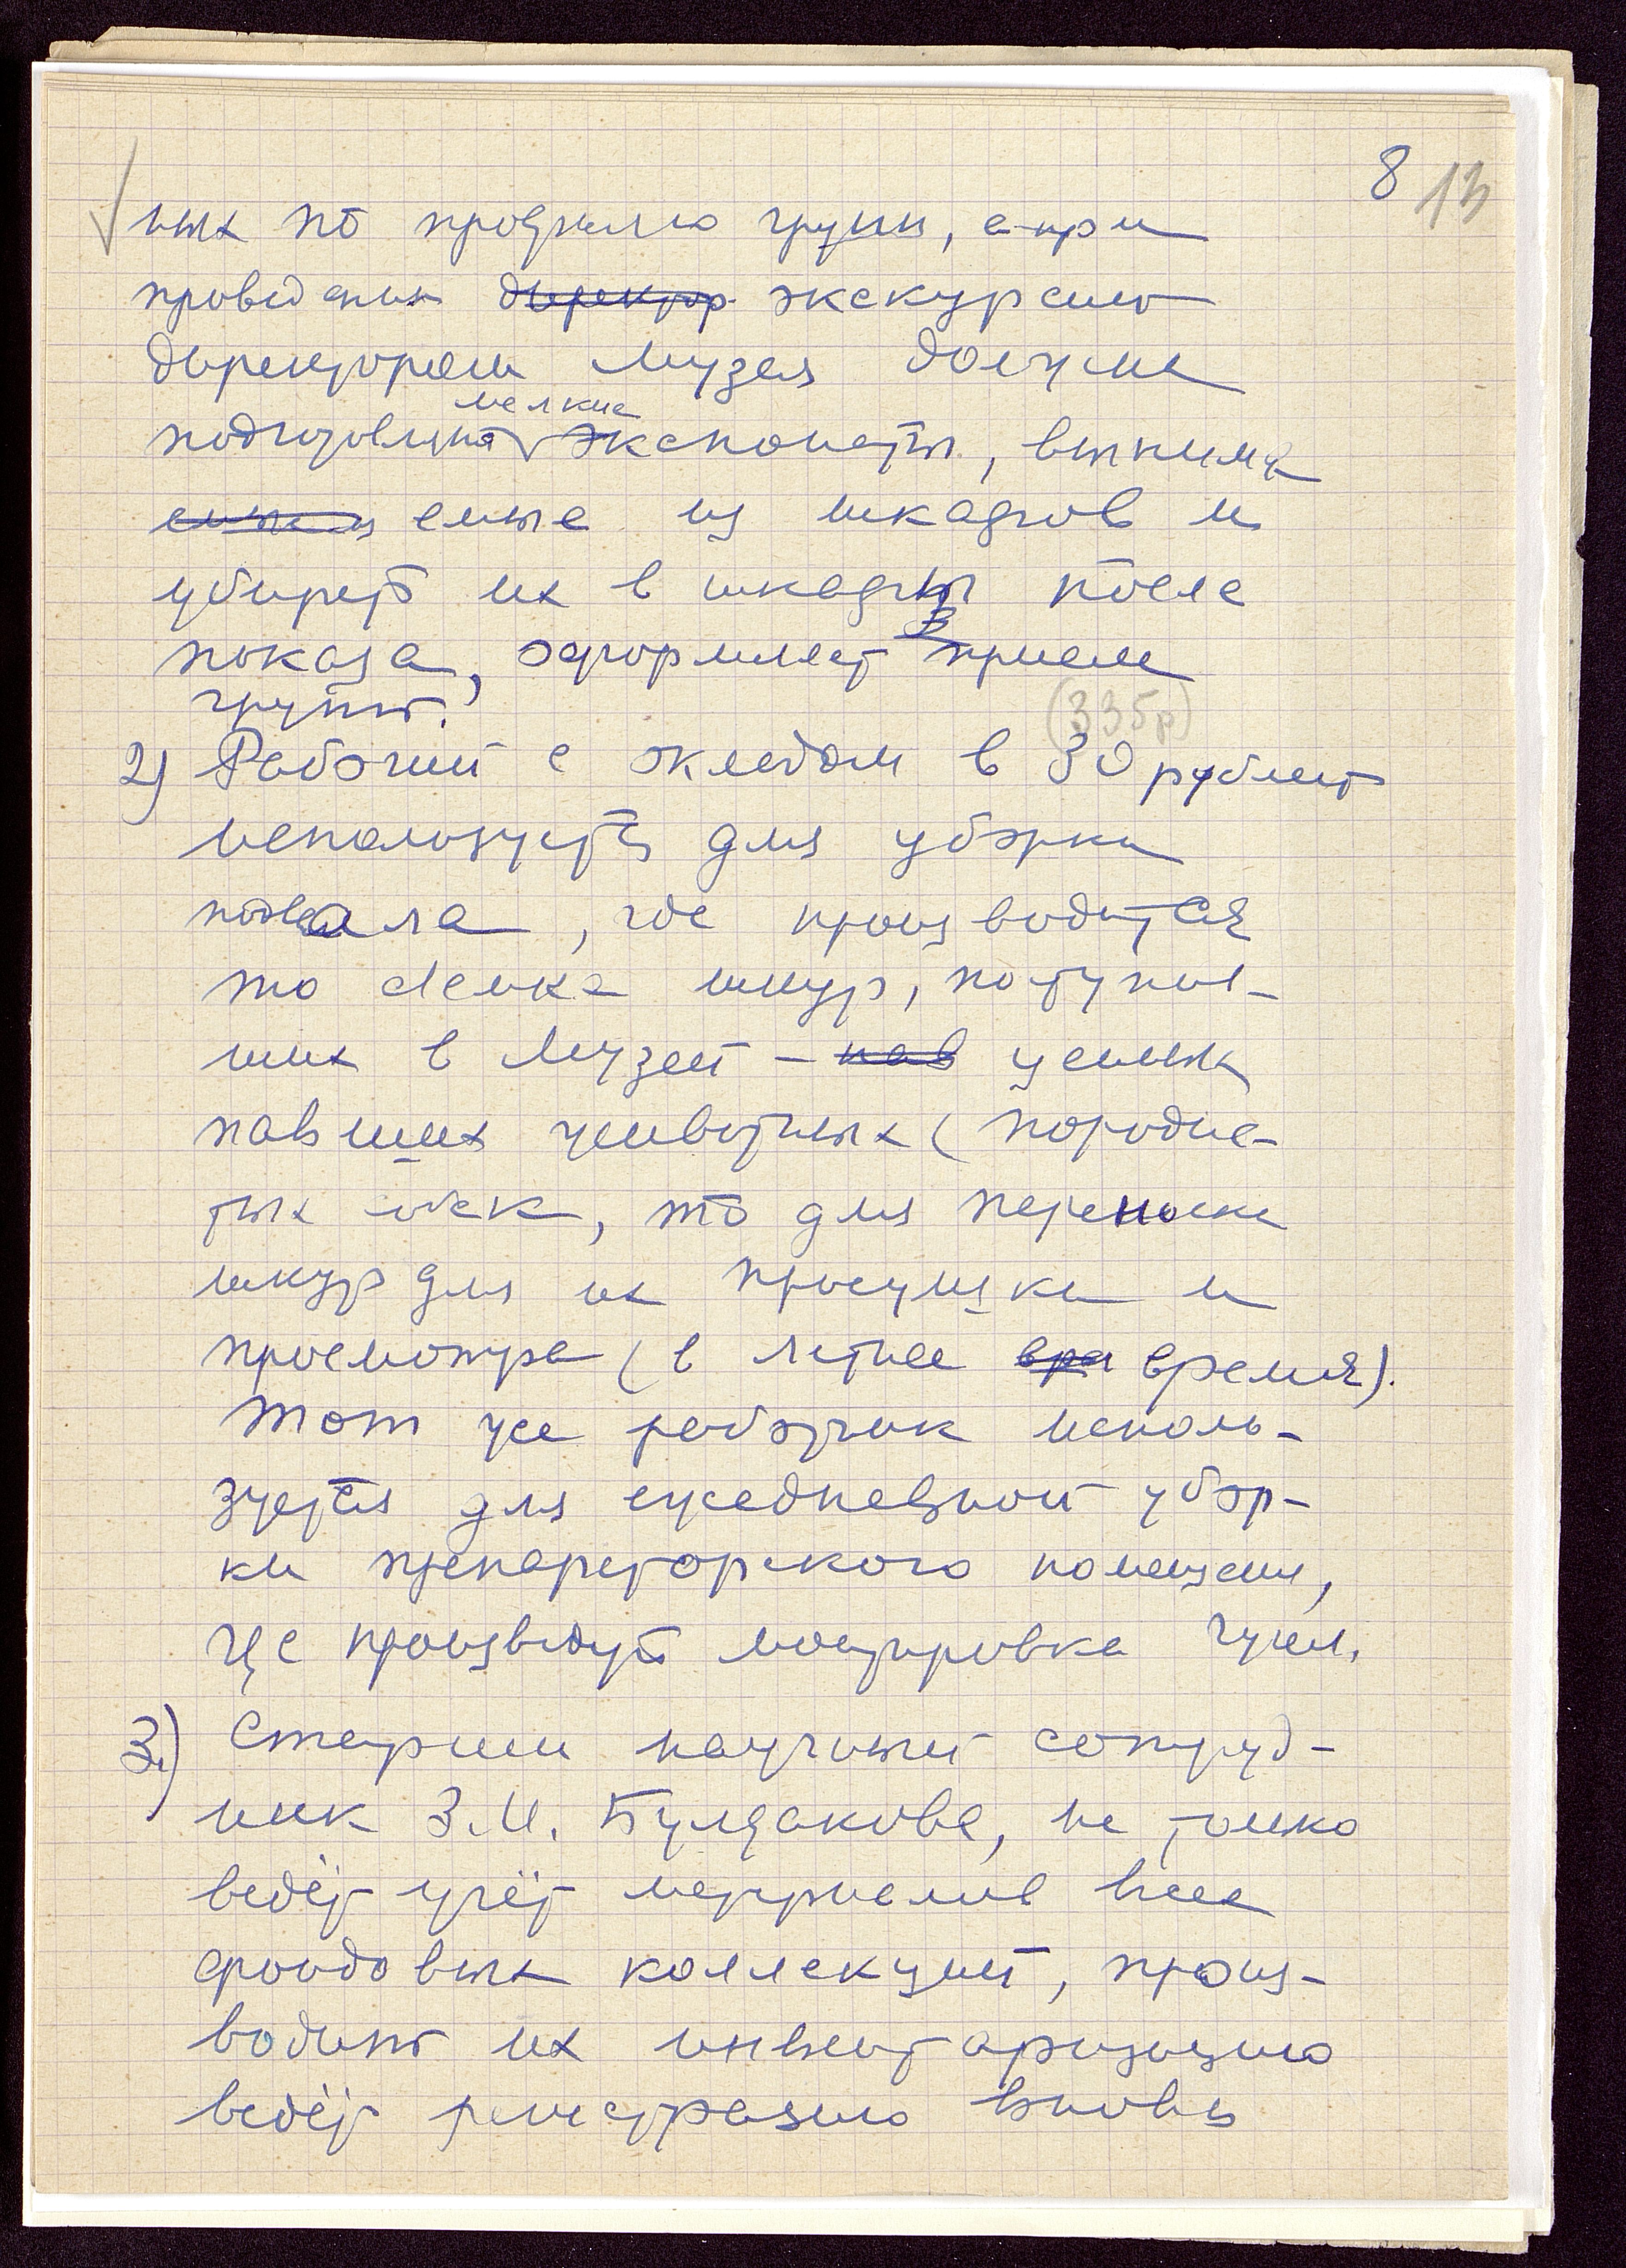 8 13
ных по профилю групп, а при
проведении директор экскурсию
директором музея должна
мелкие
подготовить экспонаты, вынимая
оные из шкафов и
убирать их в шкафы после
показа, оформляет прием
групп.
(33 5р)
2) Рабочий с окладом в 30 рублей
используется для уборки
подвала, где производится
то мойка шкур, поступив-
ших в Музей – пав у
павших животных (породис-
тых собак, то для переноски
шкур для их просушки и
просмотра (в летнее вре время).
Тот же работник исполь-
зуется для ежедневной убор-
ки препараторского помещения,
где производят монтировка чучел.
3) Старший научный сотруд-
ник З.М. Булдакова, не только
ведёт учёт материалов всех
фондовых коллекций, произ-
водит их инвентаризацию
ведёт регистрацию вновь